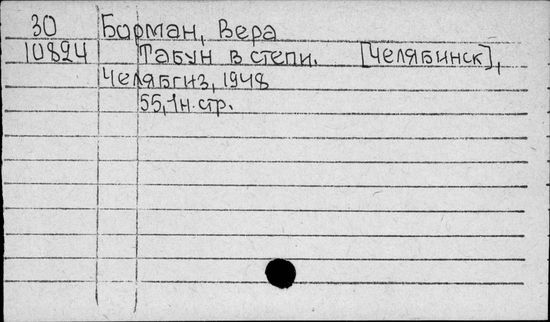 30 Борман, Вера
10824 Табун в степи. [Челябинск],
Челябгиз, 1948
55, 1 н. стр.